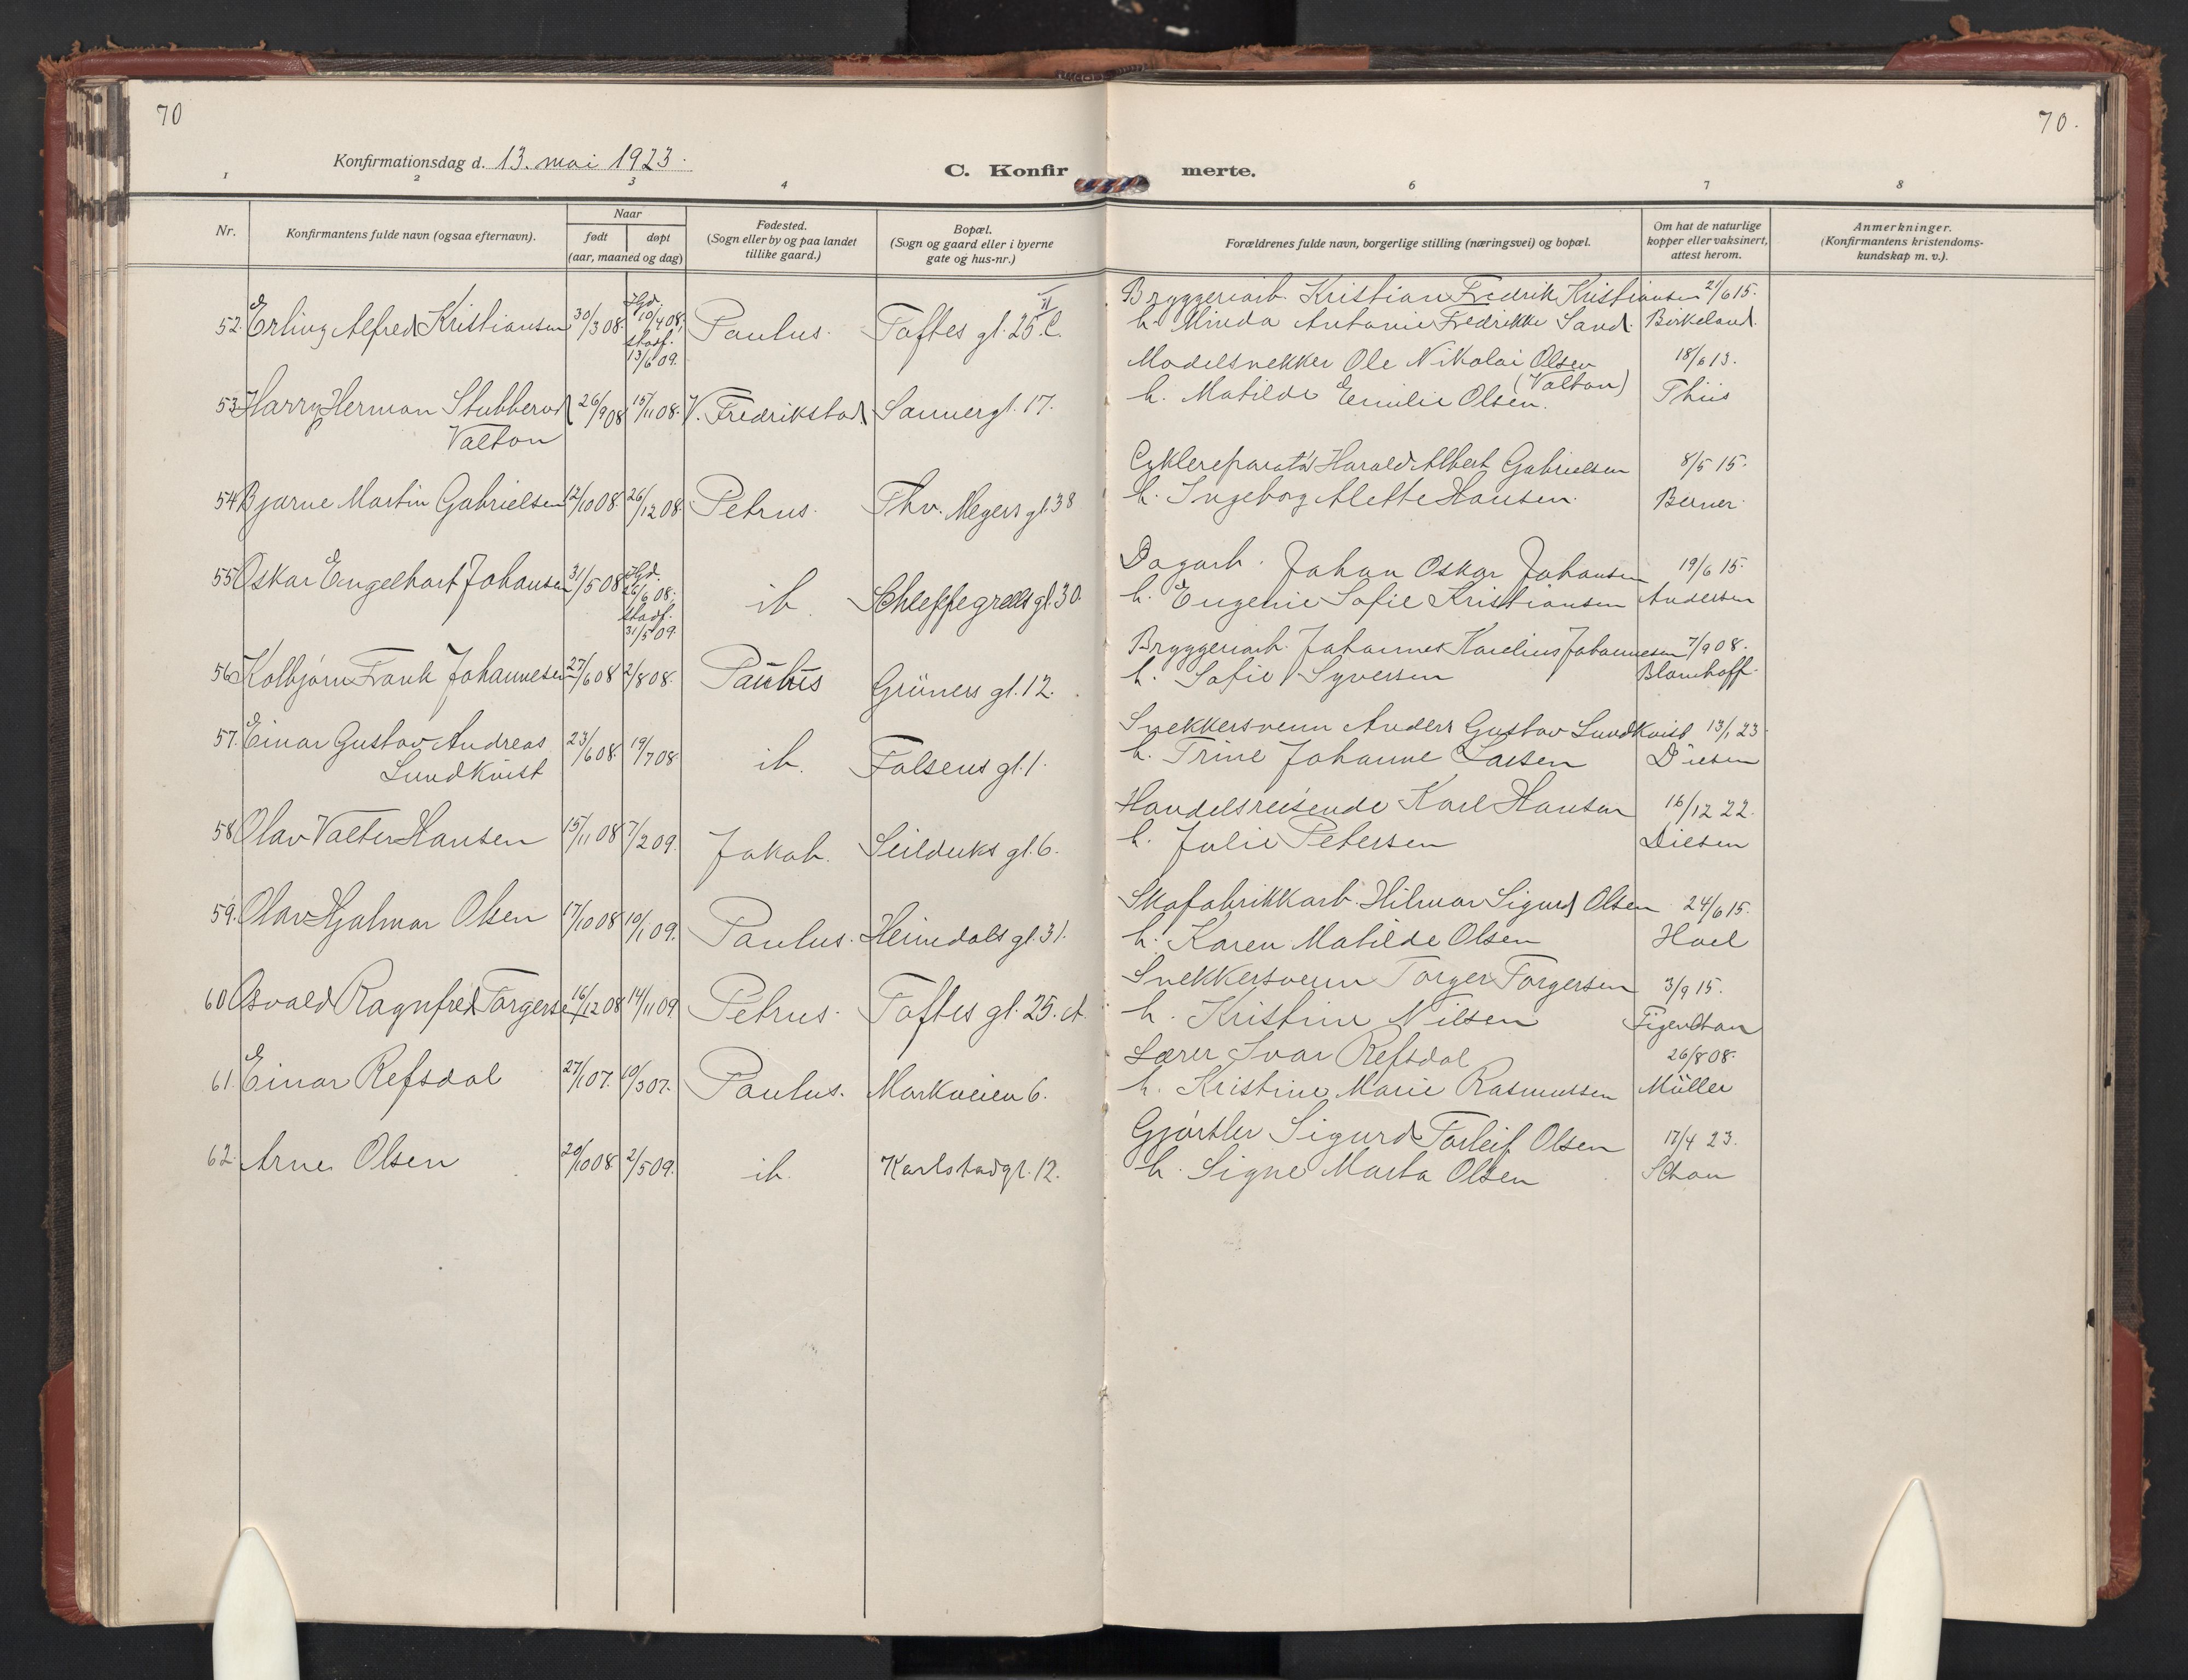 70
70.
Konfirmationsdag d. 13. mai 1923.
C. Konfirmerte.
1 2 3 4 6 7 8
Nr.
Konfirmantens fulde navn (ogsaa efternavn).
Naar
født
døpt
(aar, maaned og dag)
Fødested.
(Sogn eller by og paa landet
tillike gaard.)
Bopæl.
(Sogn og gaard eller i byerne
gate og hus-nr.)
Forældrenes fulde navn, borgerlige stilling (næringsvei) og bopæl.
Om hat de naturlige
kopper eller vaksinert,
attest herom.
Anmerkninger.
(Konfirmantens kristendoms-
kundskap m. v.).
52. Erling Alfred Kristiansen 30/3 08. Hjd. 10/4 08, stadf. 13/6 09. Paulus. Toftes gt. 25 C. II
Bryggeriarb. Kristian Fredrik Kristiansen 21/6 15.
h. Minda Antonie Fredrikke Sand. Birkeland.
53. Harry Herman Stubberud 26/9 08 15/11 08. V. Fredrikstad Sannergt. 17.
Valton
Modelsnekker Ole Nikolai Olsen 18/6 13.
(Valton)
h. Matilde Emilie Olsen. Thiis
54 Bjarne Martin Gabrielsen 12/10 08. 26/12 08. Petrus. Thv. Meyers gt. 38
Cyklereparatør Harald Albert Gabrielsen 8/5 15.
h. Ingeborg Alette Hansen. Berner.
55 Oskar Engelhart Johansen 31/5 08 Hjd. 26/6 08; stadf. 31/5 09. ib. Schleppegrells gt. 30.
Dagarb. Johan Oskar Johansen 19/6 15.
h. Eugenie Sofie Kristiansen Andersen
56 Kolbjørn Frank Johannesen 27/6 08 2/8 08. Paulus Grüners gt. 12.
Bryggeriarb. Johannes Karelius Johannesen 7/9 08.
h. Sofie Syversen Blomhoff.
57. Einar Gustav Andreas 23/6 08. 19/7 08 ib. Falsens gt. 1.
Lundkvist
Snekkersvenn Anders Gustav Lundkvist 13/1 23.
h. Trine Johanne Larsen Diesen
58 Olav Valter Hansen 15/11 08 7/2 09. Jakob. Seilduks gt. 6.
Handelsreisende Karl Hansen 16/12 22.
h. Julie Petersen Diesen
59. Olav Hjalmar Olsen 17/10 08 10/1 09. Paulus. Heimdals gt. 31.
Skofabrikkarb. Hilmar Sigurd Olsen 24/6 15.
h. Karen Matilde Olsen Hoel
60 Osvald Ragnfred Torgersen 16/12 08 14/11 09 Petrus. Toftes gt. 25. A.
Snekkersvenn Torger Torgersen 3/9 15.
h. Kristine Nilsen
61. Einar Refsdal 27/1 07. 10/3 07. Paulus. Markveien 6.
Lærer Ivar Refsdal 26/8 08.
h. Kristine Marie Rasmussen Müller
62. Arne Olsen 20/10 08. 2/5 09. ib. Karlstadgt. 12.
Gjørtler Sigurd Torleif Olsen 17/4 23.
h. Signe Marta Olsen Schou